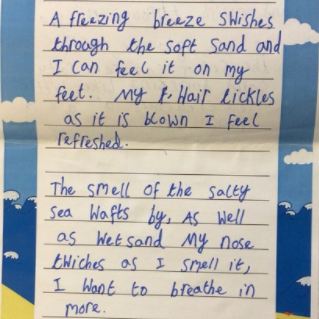 A freezing breeze swishes
through the soft sand and
I can feel it on my
feet. My Hair tickles
as it is blown I feel
refreshed.
The smell of the salty
sea wafts by, As well
as wet sand My nose
twiches as I smell it,
I want to breathe in
more.